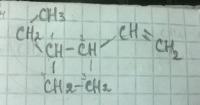 CH3
CH2 CH=CH2
CH-CH
CH2-CH2